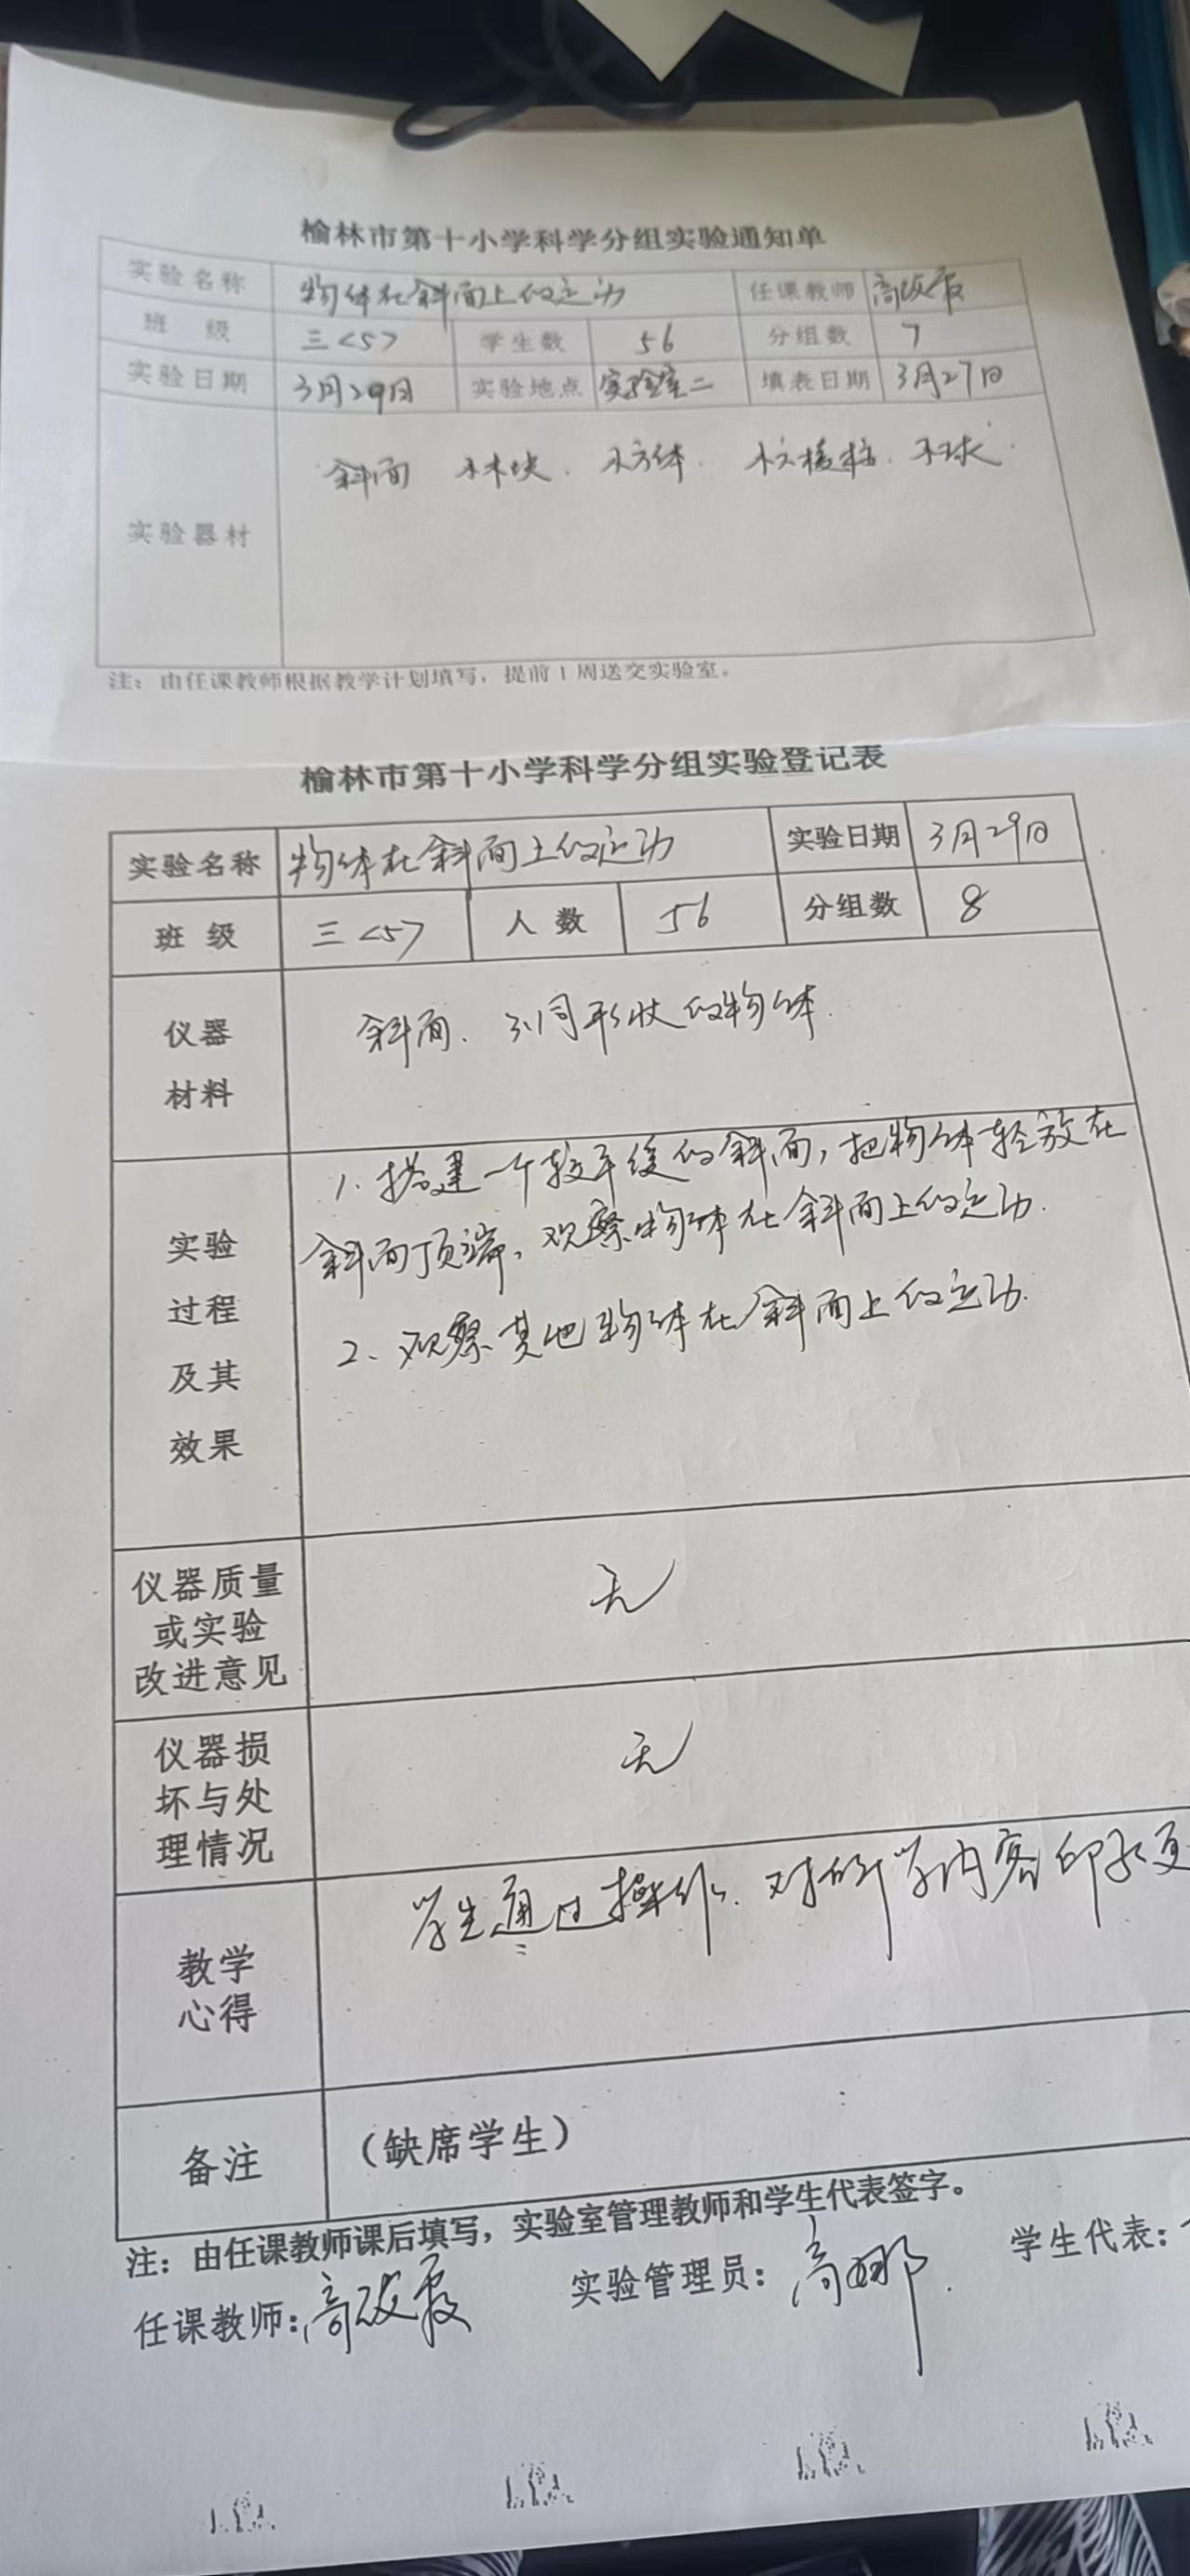 榆林市第十小学科学分组实验通知单
实验名称 物体在斜面上的运动 任课教师 高改霞
班 级 三<5> 学生数 56 分组数 7
实验日期 3月29日 实验地点 实验室二 填表日期 3月27日
实验器材 斜面 小木块. 小方体. 小球.
注：由任课教师根据教学计划填写，提前1周送交实验室。
榆林市第十小学科学分组实验登记表
实验名称 物体在斜面上的运动 实验日期 3月29日
班 级 三<5> 人 数 56 分组数 8
仪器
材料
斜面、不同形状的物体.
实验
过程
及其
效果
1、搭建一个较平缓的斜面，把物体轻放在
斜面顶端，观察物体在斜面上的运动.
2、观察其他物体在斜面上的运动.
仪器质量
或实验
改进意见
无
仪器损
坏与处
理情况
无
教学
心得
学生通过操作、对所学内容印象更
备注 （缺席学生）
注：由任课教师课后填写，实验室管理教师和学生代表签字。
任课教师：高改霞 实验管理员：高娜. 学生代表：